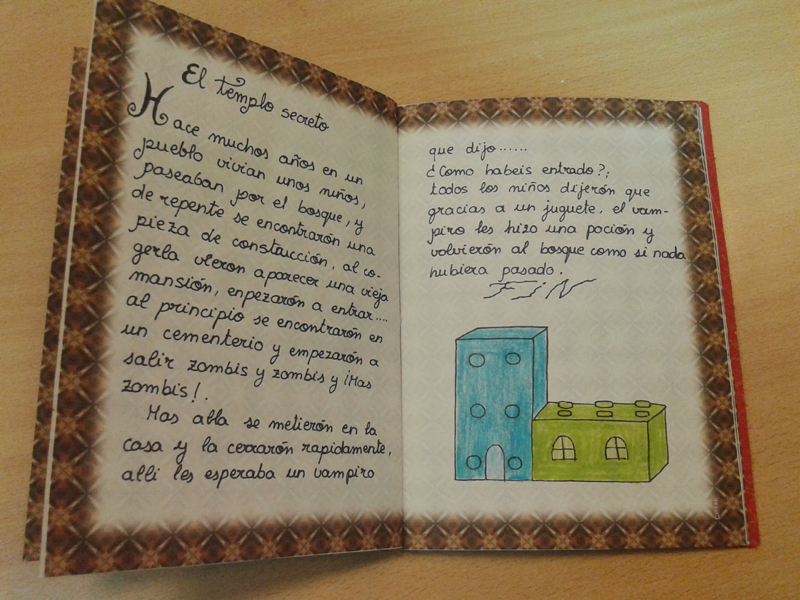 El templo secreto
Hace muchos años en un
pueblo vivian unos niños,
paseaban por el bosque, y
de repente se encontrarón una
pieza de construcción, al co-
gerla vieron aparecer una vieja
mansión, enpezarón a entrar....
al principio se encontrarón en
un cementerio y empezarón a
salir zombis y zombis y ¡Mas
zombis!.
Mas alla se metierón en la
casa y la cerrarón rapidamente,
alli les esperaba un vampiro
que dijo......
¿Como habeis entrado?;
todos los niños dijerón que
gracias a un juguete. el vam-
piro les hizo una poción y
volvierón al bosque como si nada
hubiera pasado.
FIN